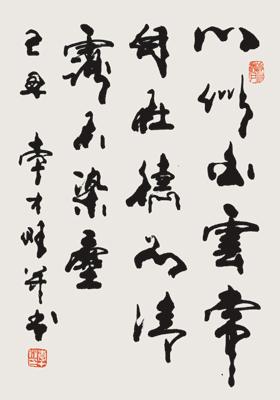 心似白雲常
自在德如清
露不染塵
己丑 李才旺并书